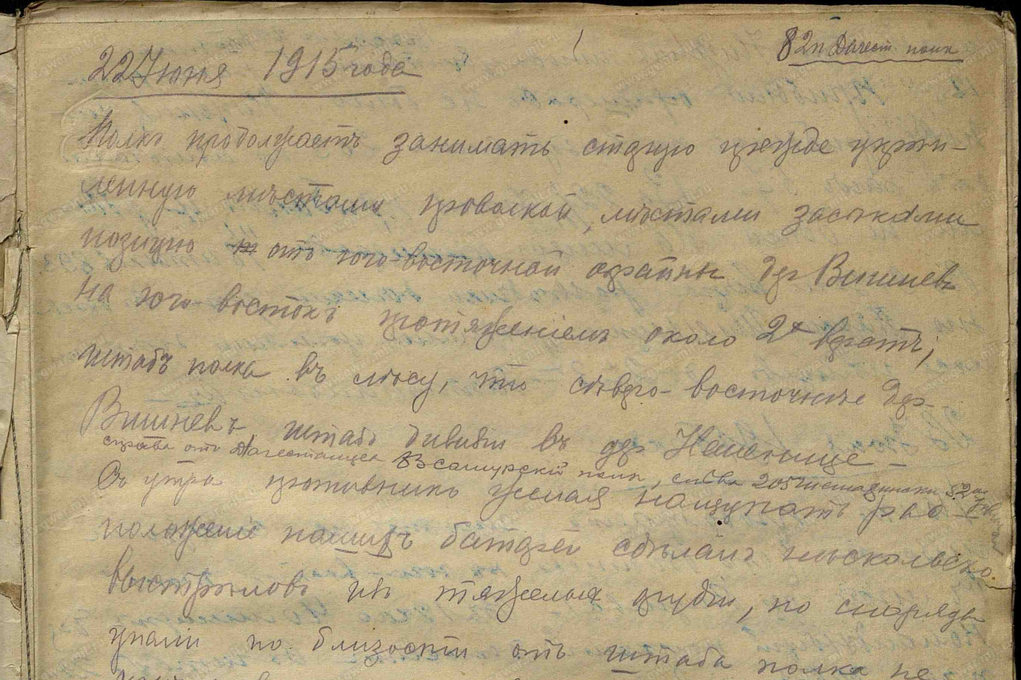 82п Дагест. полк
22 Июня 1915 года
Полкъ продолжаетъ занимать прежде укрѣп-
ленную мѣстами проволкой, мѣстами засѣками
позицію отъ юго-восточной окраины др Вишневъ
на юго-востокъ протяженіемъ около 2х верстъ,
штабъ полка въ лѣсу, что сѣверо-восточнѣе др-
Вишневъ штабъ дивизіи въ др
справа отъ Дагестанцевъ Самурскій полкъ, слѣва 205
Съ утра противникъ желая нащупать рас
положеніе нашихъ батарей сдѣлалъ нѣсколько
выстрѣловъ изъ тяжелыхъ орудій, но снаряды
упали по близости отъ штаба полка не